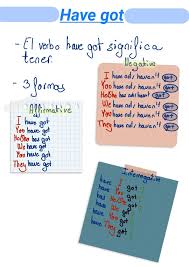 Have got
- El verbo have got significa
tener.
- 3 formas
Negative
I have not/haven't got
You have not/haven't got
He/She has not/hasn't got
We have not/haven't got
You have not/haven't got
They have not/haven't got
Affirmative
I have got
You have got
He/She has got
We have got
You have got
They have got
Interrogative
have I got
have You got
has He/She got
have We got
have You got
have They got